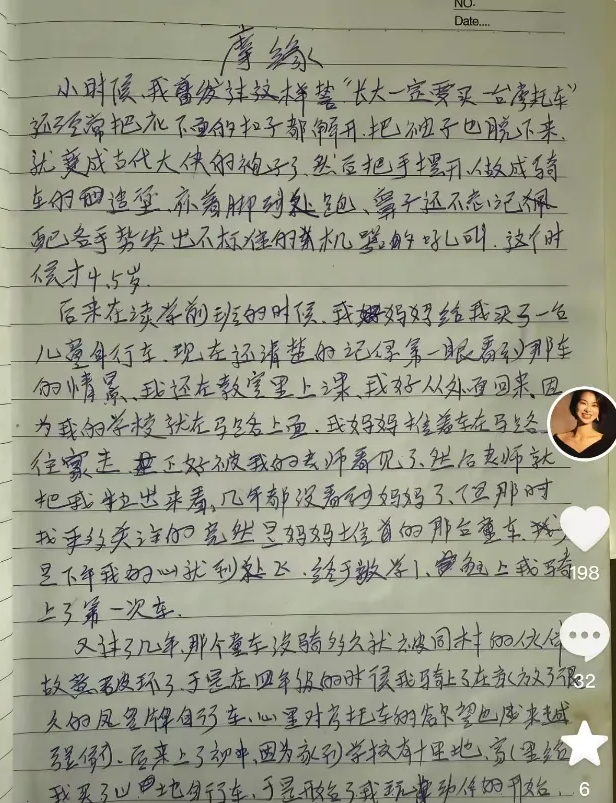 NO.
Date....
摩缘
小时候,我曾发过这样誓“长大一定要买一台摩托车”
还经常把衣下面的扣子都解开.把袖子也脱下来.
就变成古代大侠的袍子了.然后把手摆开.做成骑
车的造型.亦着脚到处跑、鼻子还不忘记佩
配名手势发出不标准的机器的吼叫.这个时
候才4.5岁.
后来在读学前班的时候.我妈妈给我买了一台
儿童自行车.现在还清楚的记得第一眼看到那车
的情景、我还在教室里上课、我好从外面回来、因
为我的学校就在马路上面.我妈妈推着车在马路
往家走 下好被我的老师看见了.然后老师就
把我叫出来看、几年都没看到妈妈了.但那时
我更多关注的竟然是妈妈推着的那台童车.
是下午我的心就到处飞.终于放学了、晚上我骑
上了第一次车.
又过了几年.那个童车没骑多久就被同村的伙伴
故意破坏了.于是在四年级的时候我骑上了在家放了很
久的凤凰牌自行车.心里对摩托车的欲望也越来越
强烈.后来上了初中.因为家到学校有十里地.家里给
我买了山地自行车.于是开始了我玩动作的开始.
198
32
6